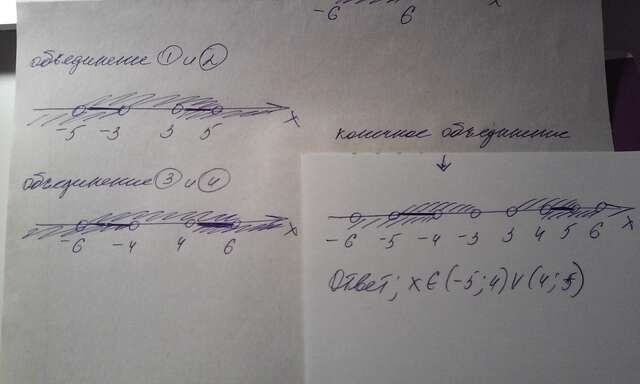 -6 6 x
объединение 1 и 2
-5 -3 3 5 x
конечное объединение
объединение 3 и 4
-6 -4 4 6 x
-6 -5 -4 -3 3 4 5 6 x
Ответ; x ∈ (-5; 4) ∨ (4; 5)